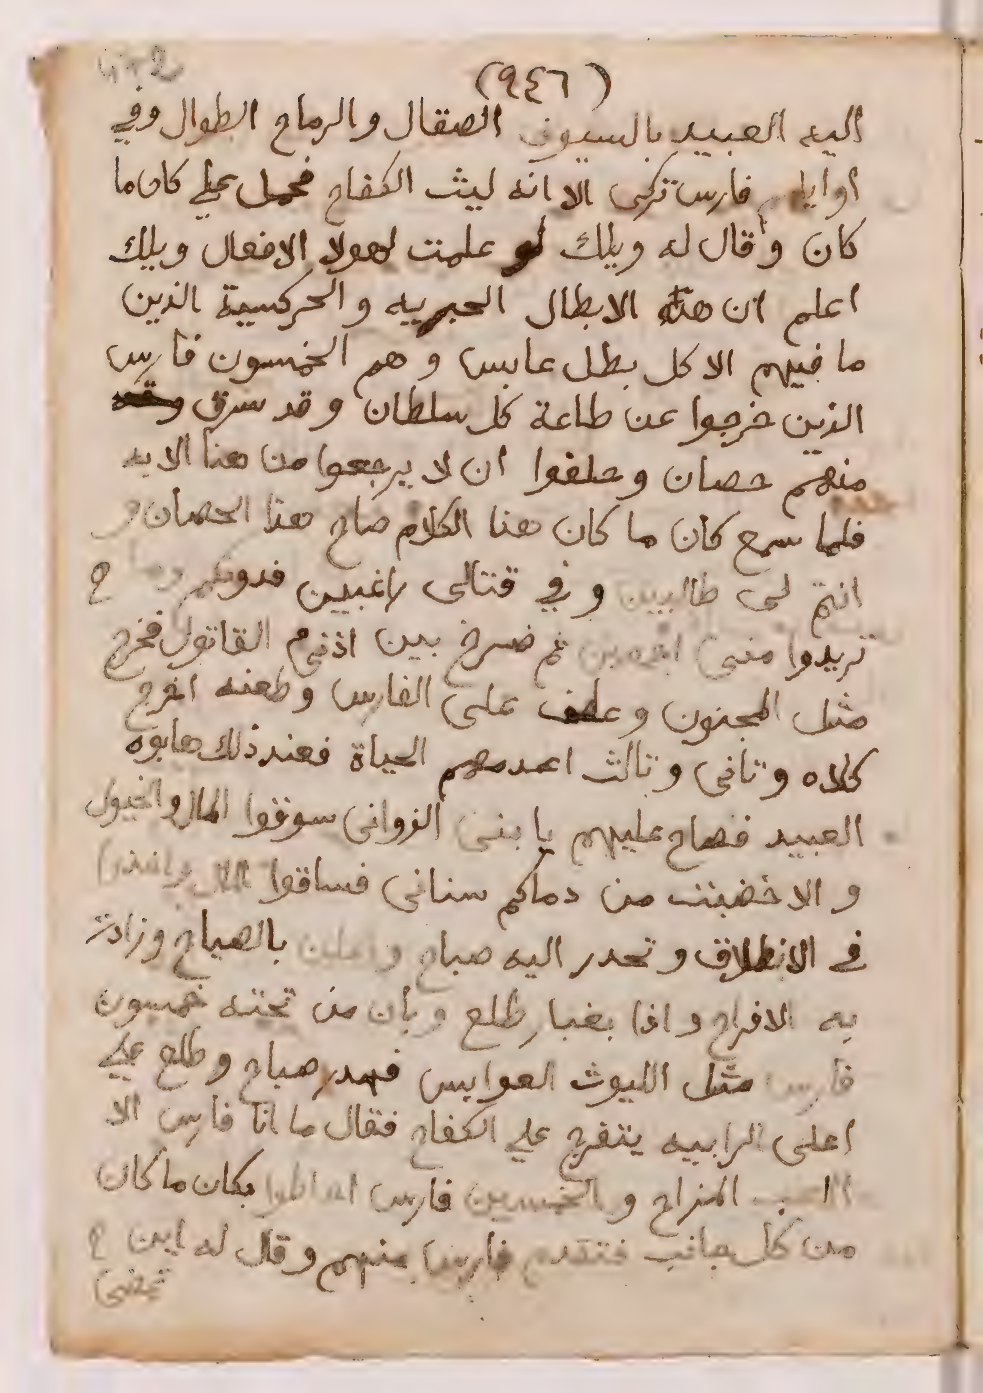 (٩٤٦)
اليه العبيد بالسيوف الصقال و الرماح الطوال و في
اوايلهم فارس تركى الا انه ليث الكفاح فحمل علي كان ما
كان و قال له ويلك لو علمت لهولا الافعال ويلك
اعلم ان هذه الابطال و الجركسية الذين
ما فيهم الا كل بطل عابس و هم الخمسون فارس
الذين خرجوا عن طاعة كل سلطان و قد سرق
منهم حصان و حلفوا ان لا يرجعوا من هنا الا به
فلما سمع كان ما كان هذا الكلام صاح هذا الحصان و
انتم لى طالبين و في قتالى راغبين فدونكم و ما
تريدوا منى اجمعين ثم صرخ بين اذنى القاتول فخرج
مثل المجنون و عطف على الفارس و طعنه اخرج
كلاه و ثانى و ثالث اعدمهم الحياة فعند ذلك هابوه
العبيد فصاح عليهم يا بنى الزوانى سوقوا المال و الخيول
و الا خضبت من دماكم سنانى فساقوا المال و اخذوا
في الانطلاق و تحدر اليه صباح و اعلن بالصياح و زادت
به الافراح و اذا بغبار طلع و بان من تحته خمسون
فارس مثل الليوث العوابس فهدر صباح و طلع علي
اعلى الرابيه يتفرج علي الكفاح فقال ما انا فارس الا
اللعب المزاح و الخمسين فارس احاطوا بكان ما كان
من كل جانب فتقدم فارس منهم و قال له اين
تمضى